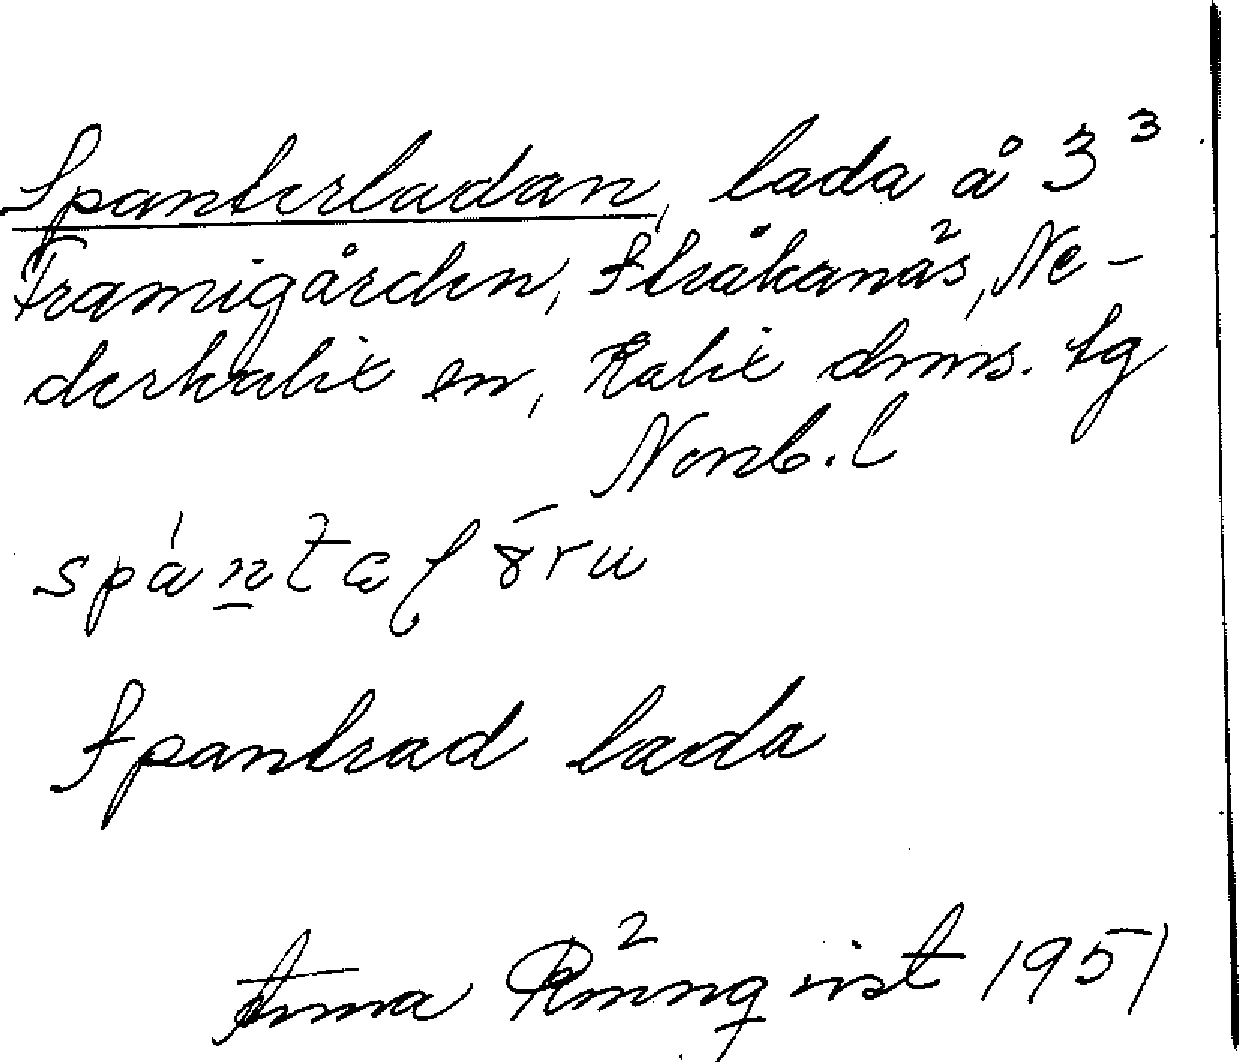 Spanterladan, lada å 3³
Framigården, Stråkanäs, Ne-
derkalix sn, Kalix dms. tg
Norrb. l
Spantrad lada
Anna Rönnqvist 1951